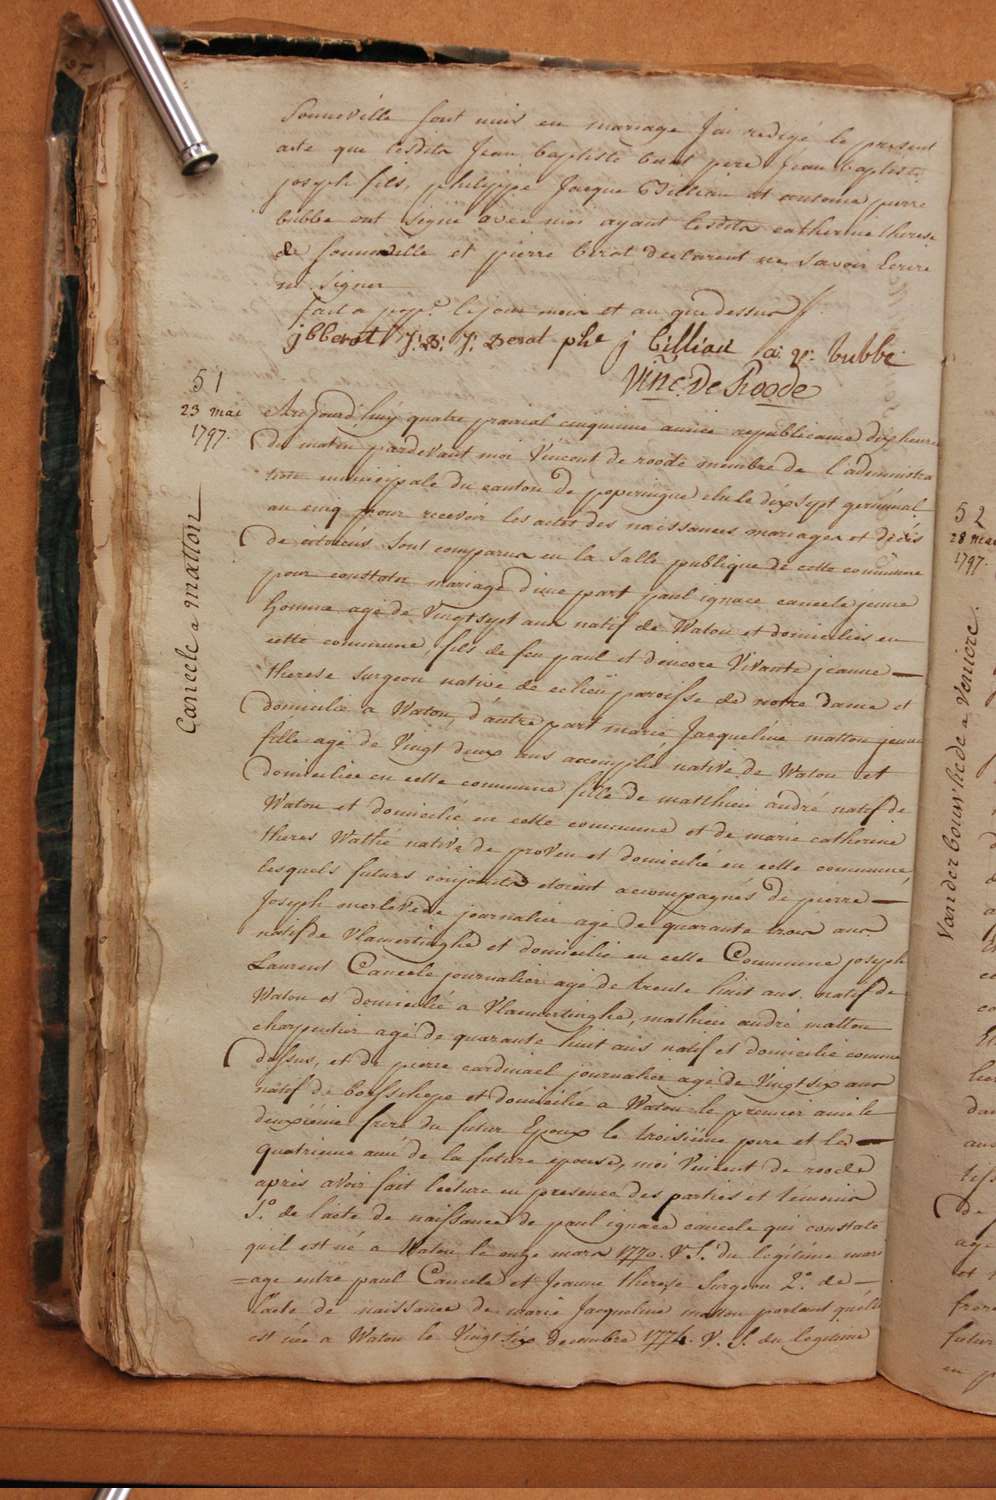 Sonneville sont unis en mariage j'ai redigé le present
acte que lesdits Jean baptiste berat pere Jean baptiste
joseph fils, philippe Jacque Billiau et antoine pierre
bubbe ont signé avec moi ayant lesdits catherine therese
de sonneville et pierre berat declarent ne savoir Ecrire
ni signer
fait a pop.e le jour mois et an que dessus
jbberat J: B: J: Berat phe j billiau a: p: bubbe
Vinc. De Roode
51
23 mai
1797.
Cancele a matton
Aujourd'huy quatre prairial cinquieme année republicaine dix heures
du matin pardevant moi Vincent de roode membre de l'administra
tion municipale du canton de poperingue elu le dix sept germinal
an cinq pour recevoir les actes des naissances mariages et décès
de citoiens sont comparus en la salle publique de cette commune
pour constater mariage d'une part paul ignace cancele jeune
homme agé de Vingt sept ans natif de Watou et domiciliés en
cette commune, fils de feu paul et d'encore Vivante jeanne
therese surgeon native de paroisse de notre dame et
domicilié a Watou, d'autre part marie Jacqueline matton jeune
fille agé de Vingt deux ans accomplis native de Watou et
domiciliée en cette commune fille de matthieu andré natif de
Watou et domicilié en cette commune et de marie catherine
theres Wattié native de proven et domicilié en cette commune
lesquels futurs conjoints etoient accompagnés de pierre
Joseph merlevede journalier agé de quarante trois ans
natif de Vlamertinghe et domicilié en cette Commune joseph
Laurent Cancele journalier agé de trente huit ans natif de
Watou et domicilié a Vlamertinghe, mathieu andré matton
charpentier agé de quarante huit ans natif et domicilié comme
dessus, et de pierre cardinael journalier agé de Vingt six ans
natif de boesschepe et domicilié a Watou le premier ami le
deuxième frere du futur Epoux le troisième pere et le
quatrieme ami de la future epouse, moi Vincent de roode
après avoir fait lecture en presence des parties et temoins
1.° de l'acte de naissance de paul ignace cancele qui constate
quil est né a Watou le onze mars 1770. V. S. du legitime mari
=age entre paul Cancele et Jeanne therese Surgeon 2.° de
l'acte de naissance de marie Jacqueline matton portant qu'elle
est née a Watou le Vingt six decembre 1774. V. S. du legitime
52
28 mai
1797.
Vanderbouwhede a Veniere